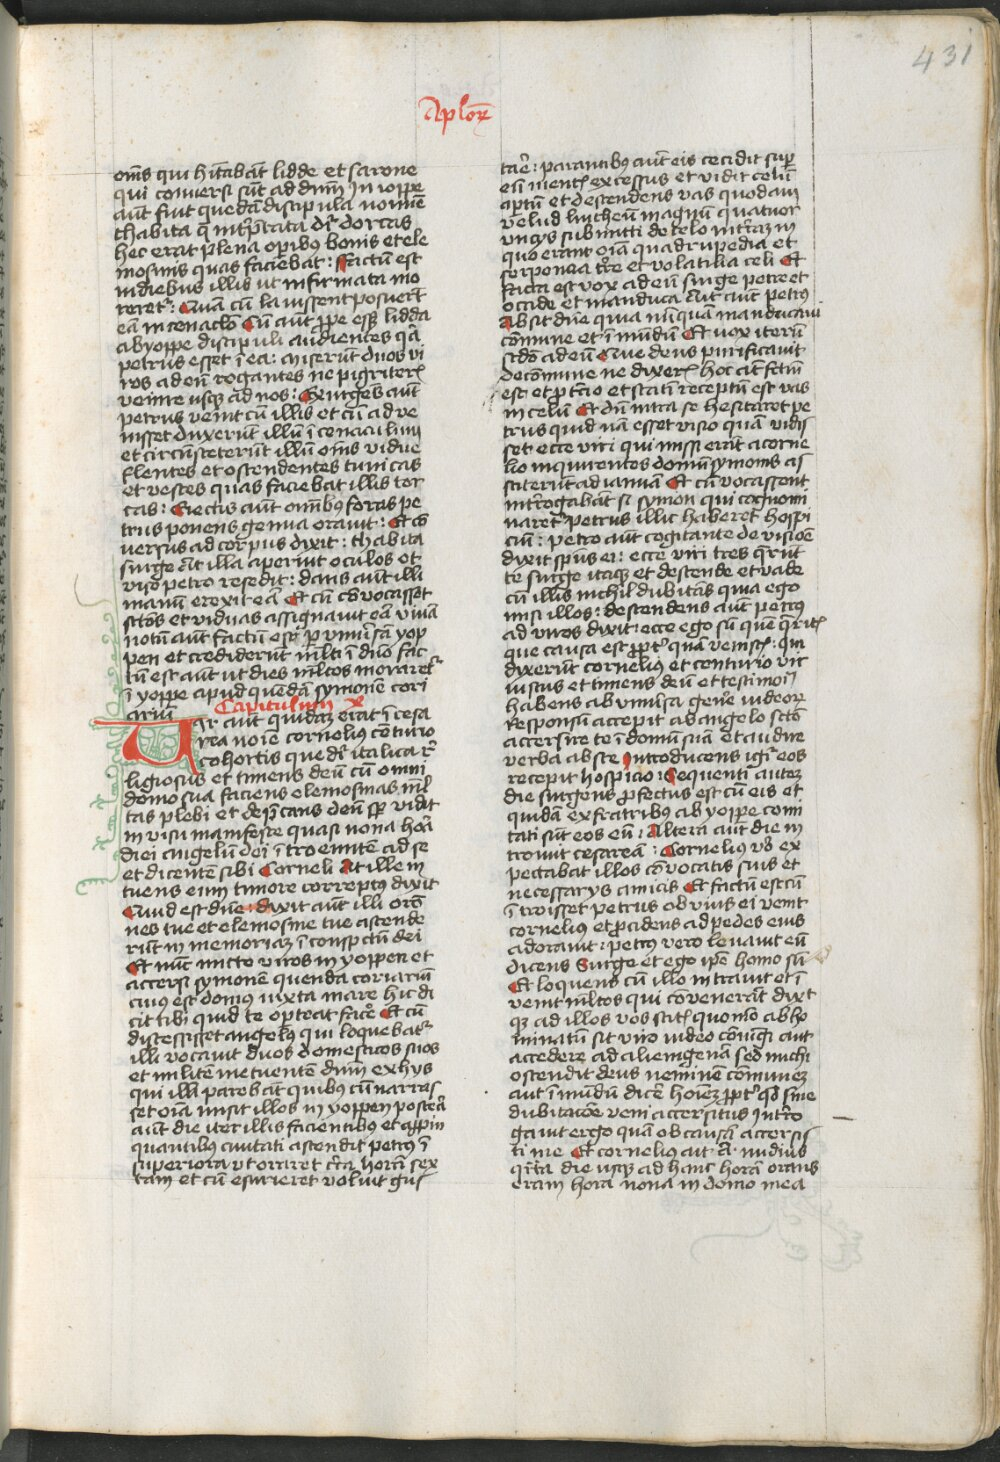 431
Aplorꝫ
om̄s qui hītabāt lidde et sarone
qui conuersi sūt ad dnm̄ In ioppe
aūt fuit quedā discipula nomīe
thabita q̄ intp̄rata dr̄ dorcas
hec erat plena opibꝰ bonis et ele
mosinis quas faciēbat : Factū est
in diebus illis ut infirmata mo
reretᷣ : Quā cū lauissent posuerūt
eā in cenaclo Cū aūt ꝓpe essꝫ lidda
ab yoppe discipuli audientes qꝛ
petrus esset ī ea : miserūt duos vi
ros ad eū rogantes ne pigriterꝭ
venire usqꝫ ad nos : Exurgēs aūt
petrus venit cū illis et cū adve
nisset duxerūt illū ī cenaculum
et circūsteterūt illū om̄s vidue
flentes et ostendentes tunicas
et vestes quas faciebat illis dor
cas : Eiectis aūt om̄ibꝰ foras pe
trus ponens genua orauit : Et cō
versus ad corpus dixit : thabita
surge At illa aperuit oculos et
viso petro resedit : dans aūt illi
manū erexit eā Et cū cōvocasset
sctōs et viduas assignauit eā viuā
notū aūt factū est ꝑ vniūsā yop
pen et crediderūt ml̄ti ī dno̅ fac
tū est aūt ut dies ml̄tos morarētᷣ
ī yoppe apud quēdā symonē cori
ariū Capitulum x
Uir aūt quidaꝫ erat ī cesa
rea noīe cornelius cēturio
cohortis que dr̄ italica rᷣ
ligiosus et timens deū cū omni
domo sua faciens elemosinas ml̄
tas plebi et dep̄cans deū sp̄ vidit
in visu manifeste quasi nona horā
diei angelū dei ītroeuntē ad se
et dicentē sibi Corneli At ille in
tuens eum timore correptꝰ dixit
Quid est dnē : dixit aūt illi orō
nes tue et elemosine tue ascende
rūt in memoriaꝫ ī conspctū dei
Et nūc mitte viros in yoppen et
accersi symonē quendā coriariū
cuius est domus iuxta mare hic di
cit tibi quid te oporteat facere Et cū
discessisset angelus qui loquebatᷣ
illi vocauit duos domesticos suos
et militē metuentem dnm̄ ex hys
qui illi parebāt quibus cū narras
set oīa misit illos in yoppen postera
aūt die iter illis facientibus et appin
quantibus ciuitati ascendit petrꝰ ī
superiora vt oraret circa horā sex
tam et cū esurieret voluit gus
tare : parantibus aūt eis cecidit sup
eū mentꝭ excessus et vidit celū
aptū et descendens vas quoddam
velud lintheū magnū quatuor
vncys submitti de celo in terraꝫ in
quo erant oīa quadrupedia et
serpencia tre̅ et volatilia celi Et
facta est vox ad eū surge petre et
occide et manduca Ait aūt petrus
Absit dnē quia nūquam manducaui
cōmune et īmūdū Et vox iterū
scdo ad eū Que deus purificauit
Tu cōmune ne dixerꝭ hoc aūt factū
est ꝑ ter et statī receptū est vas
in celū Et dū intra se hesitaret pe
trus quid nā esset visio quā vidis
set ecce viri qui missi erāt a corne
lio inquirentes domū symonis as
titerūt ad ianuā Et cū vocassent
introgabāt si symon qui cognomi
naretᷣ petrus illic haberet hospi
ciū : petro aūt cogitante de visiōe
dixit spūs ei : ecce viri tres q̄rūt
te surge itaqꝫ et descende et vade
cū illis nichil dubitās quia ego
misi illos : descendens aūt petrus
ad viros dixit : ecce ego sū quē q̄ritꝭ
que causa est ꝓptᷣ quā venistꝭ : qui
dixerūt cornelius et centurio vir
iustus et timens deū et testimoī
habens ab vniūsa genᷣe iudeorꝫ
Responsū accepit ab angelo sctō
accersire te ī domū suā et audire
verba abs te Introducens igᷣ eos
recepit hospicio : Sequenti auteꝫ
die surgens ꝓfectus est cū eis et
quidā ex fratribus ab yoppe comi
tati sūt eos eū : Altera aūt die in
troiuit cesareā : Cornelius vō ex
pectabat illos cōvocatis suis et
necessarys amicis Et factū est cū
ītroisset petrus obuius ei venit
cornelius et ꝓcidens ad pedes eius
adorauit : petrꝰ vero leuauit eū
dicens Surge et ego ip̄e homo sū
Et loquens cū illo intrauit et ī
venit ml̄tos qui cōvenerāt dixt
qꝫ ad illos vos scitꝭ quomō abho
minatū sit viro iudeo cōiūgi aut
accedere ad alienigenā sed michi
ostendit deus neminē cōmuneꝫ
aut īmūdū dicere hoīeꝫ ꝓptᷣ qd̄ sine
dubitacōe veni accersitus Intrro
gauit ergo quā ob causā accersis
ti me Et cornelius ait A nudius
qrta die usqꝫ ad hanc horā orans
eram hora nona in domo mea